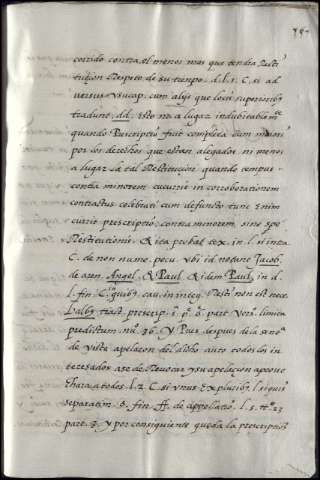 corrido contra el menor mas que tendra Resti
tuçion Respeto de su tiempo. d. l. 1. C. si ad
versus ysucap. cum alijs que locis superioribus
tradunt. dd. Esto no a lugar indubitabimte
quando Prescriptio fuit complera cum maiori
por los derechos que estan alegados ni menos
a lugar la tal Restitucion quando tempus
contra minorem cucurrit in corroborationem
contractus celebrati cum defuncto tunc enim
currit prescriptio contra minorem, sine spe
Restitutionis. & ita probat tex. in. l. si in ta
C. de non nume. pecu. vbi id notant Jacob.
de aren. Angel. & Paul. & idem Paul, in d.
l. fin C. quibus cau. in integ. Resti non est nece
Balbus tract. prescrip. 1. p. 6. part. vers. limita
predictum. nu. 36. Y Pues despues de la sena
de vista apelaron del dicho auto todos los in
teresados a se de Revocar y su apelaçon aprove
chara a todos. l. 2. C. si vnus ex pluribus. l. si quis
separatim. §. fin. ff. de appellatio. l. 5. tto. 23
part. 3. y por consiguiente queda la prescriptio